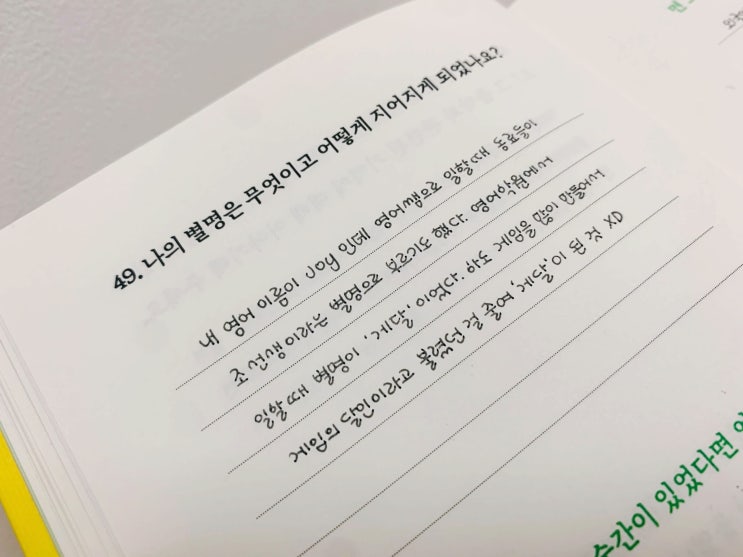 49. 나의 별명은 무엇이고 어떻게 지어지게 되었나요?
내 영어 이름이 Joy 인데 영어쌤으로 일할때 동료들이
조선생이라는 별명으로 부르기도 했다. 영어학원에서
일할때 별명이 '게달'이었다. 하도 게임을 많이 만들어서
게임의 달인이라고 불렸던 걸 줄여 '게달'이 된 것 XD
순간이 있었다면